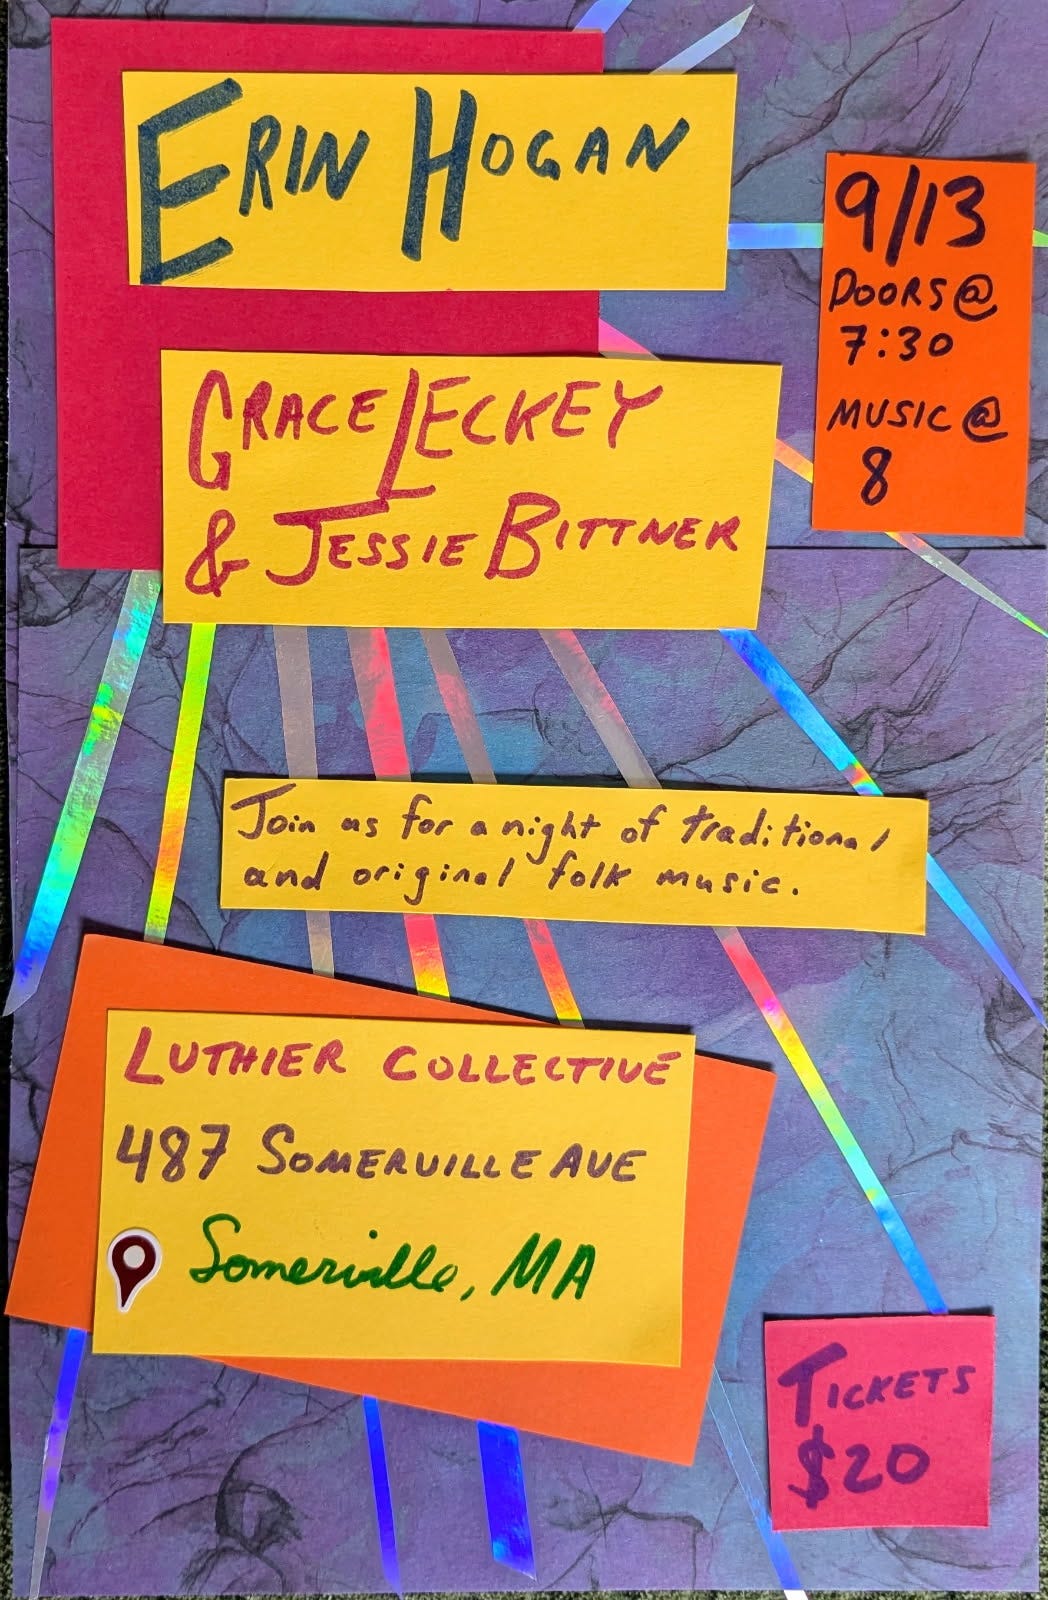 ERIN HOGAN
9/13
DOORS @
7:30
MUSIC @
8
GRACE LECKEY
& JESSIE BITTNER
Join us for a night of traditional
and original folk music.
LUTHIER COLLECTIVE
487 SOMERVILLE AVE
Somerville, MA
TICKETS
$20